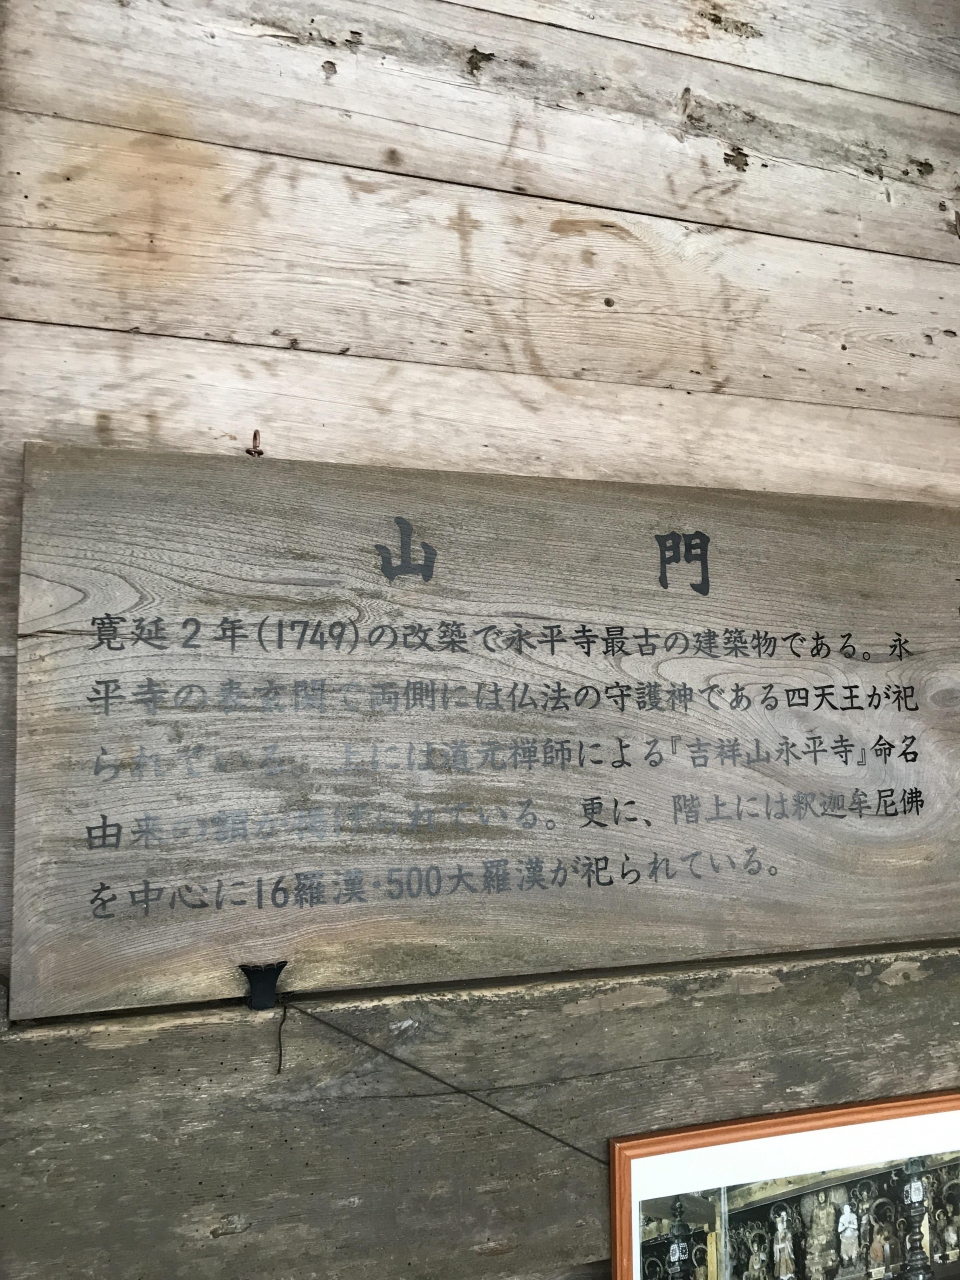 山門
寛延2年(1749)の改築で永平寺最古の建築物である。永
平寺の表玄関で両側には仏法の守護神である四天王が祀
られている。上には道元禅師による『吉祥山永平寺』命名
由来の額が掲げられている。更に、階上には釈迦牟尼佛
を中心に16羅漢・500大羅漢が祀られている。